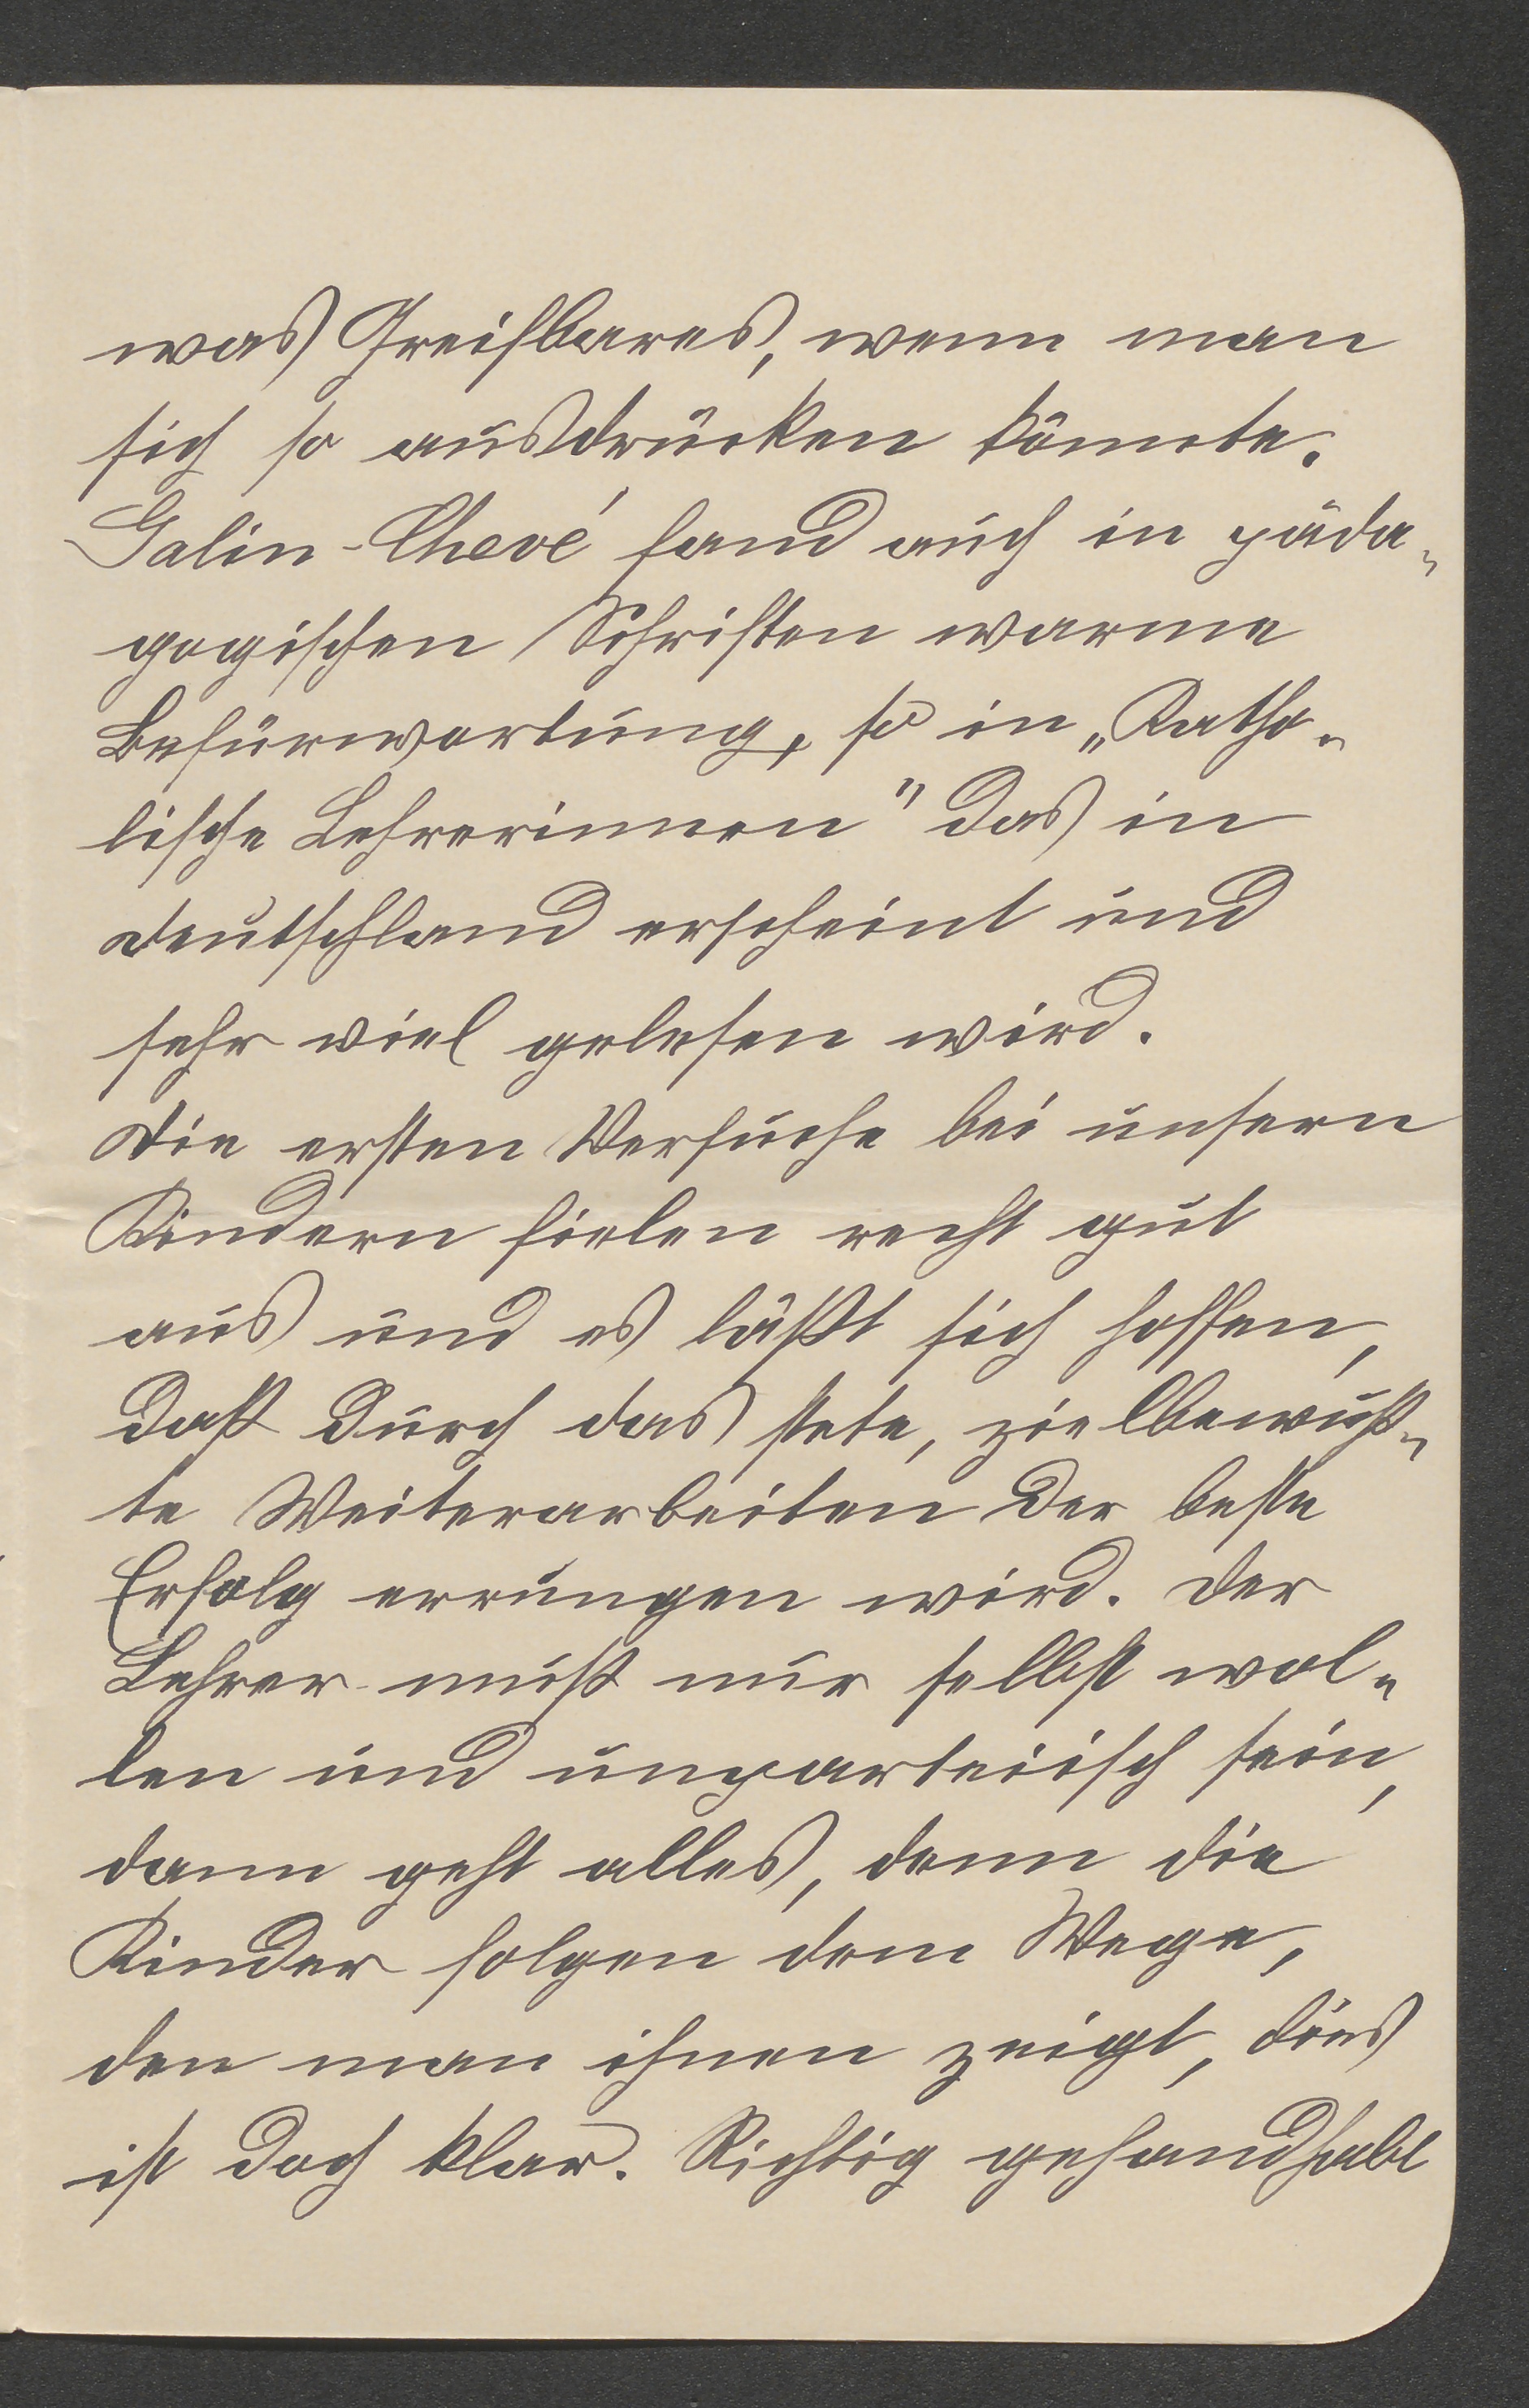 was Greifbares, wenn man
sich so ausdrücken könnte.
Galin-Chevé fand auch in päda-
gogischen Schriften warme
Befürwortung, so in „Katho-
lische Lehrerinnen" das in
Deutschland erscheint und
sehr viel gelesen wird.
Die ersten Versuche bei unsern
Kindern fielen recht gut
aus und es läßt sich hoffen,
daß durch das stete, zielbewuß-
te Weiterarbeiten der beste
Erfolg errungen wird. Der
Lehrer muß nur selbst wol-
len und unparteiisch sein,
dann geht alles, denn die
Kinder folgen dem Wege,
den man ihnen zeigt, dies
ist doch klar. Richtig gehandhabt